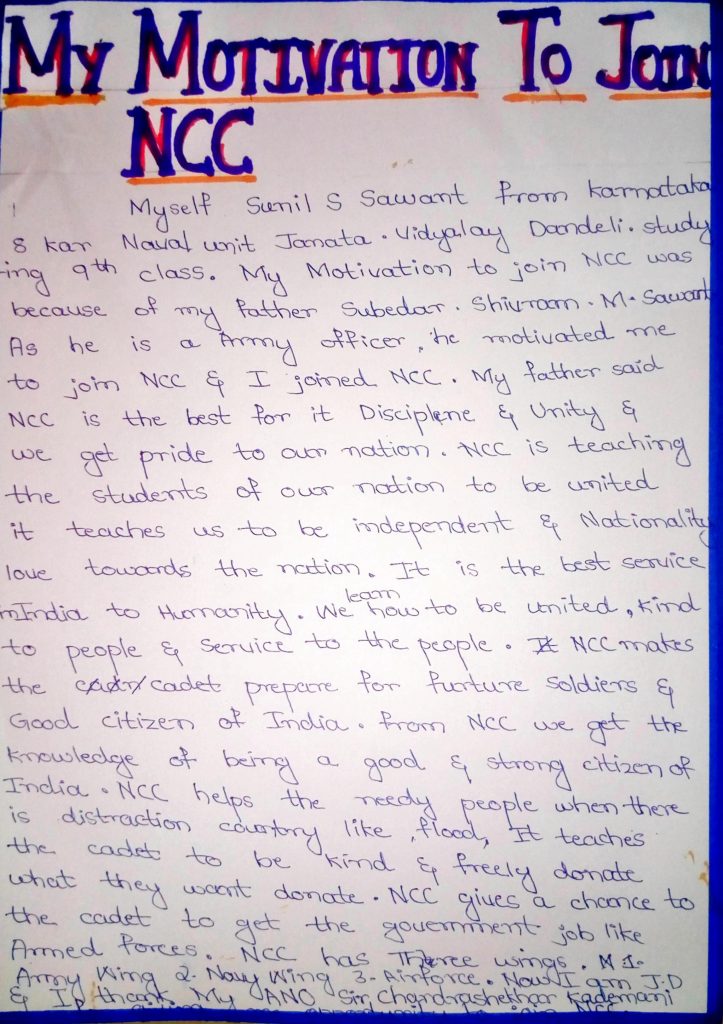 MY MOTIVATION TO JOIN
NCC
Myself Sunil S Sawant from Karnataka
8 kar Naval unit Janata. Vidyalay Dandeli. study
-ing 9th class. My Motivation to join NCC was
because of my father Subedar. Shivram. M. Sawant
As he is a Army officer, he motivated me
to join NCC & I joined NCC. My father said
NCC is the best for it Discipline & Unity &
we get pride to our nation. NCC is teaching
the students of our nation to be united
it teaches us to be independent & Nationality
love towards the nation. It is the best service
in India to Humanity. We learn how to be united, kind
to people & service to the people. It NCC makes
the cadet prepare for furture soldiers &
Good citizen of India. From NCC we get the
knowledge of being a good & strong citizen of
India. NCC helps the needy people when there
is distraction country like, flood, It teaches
the cadet to be kind & freely donate
what they want donate. NCC gives a chance to
the cadet to get the government job like
Armed forces. NCC has Theree wings. 1.
Army Wing 2- Navy Wing 3- Airforce. Now I am J.D
& I thank My ANO Sir Chandrashekhar Kademani
to join NCC